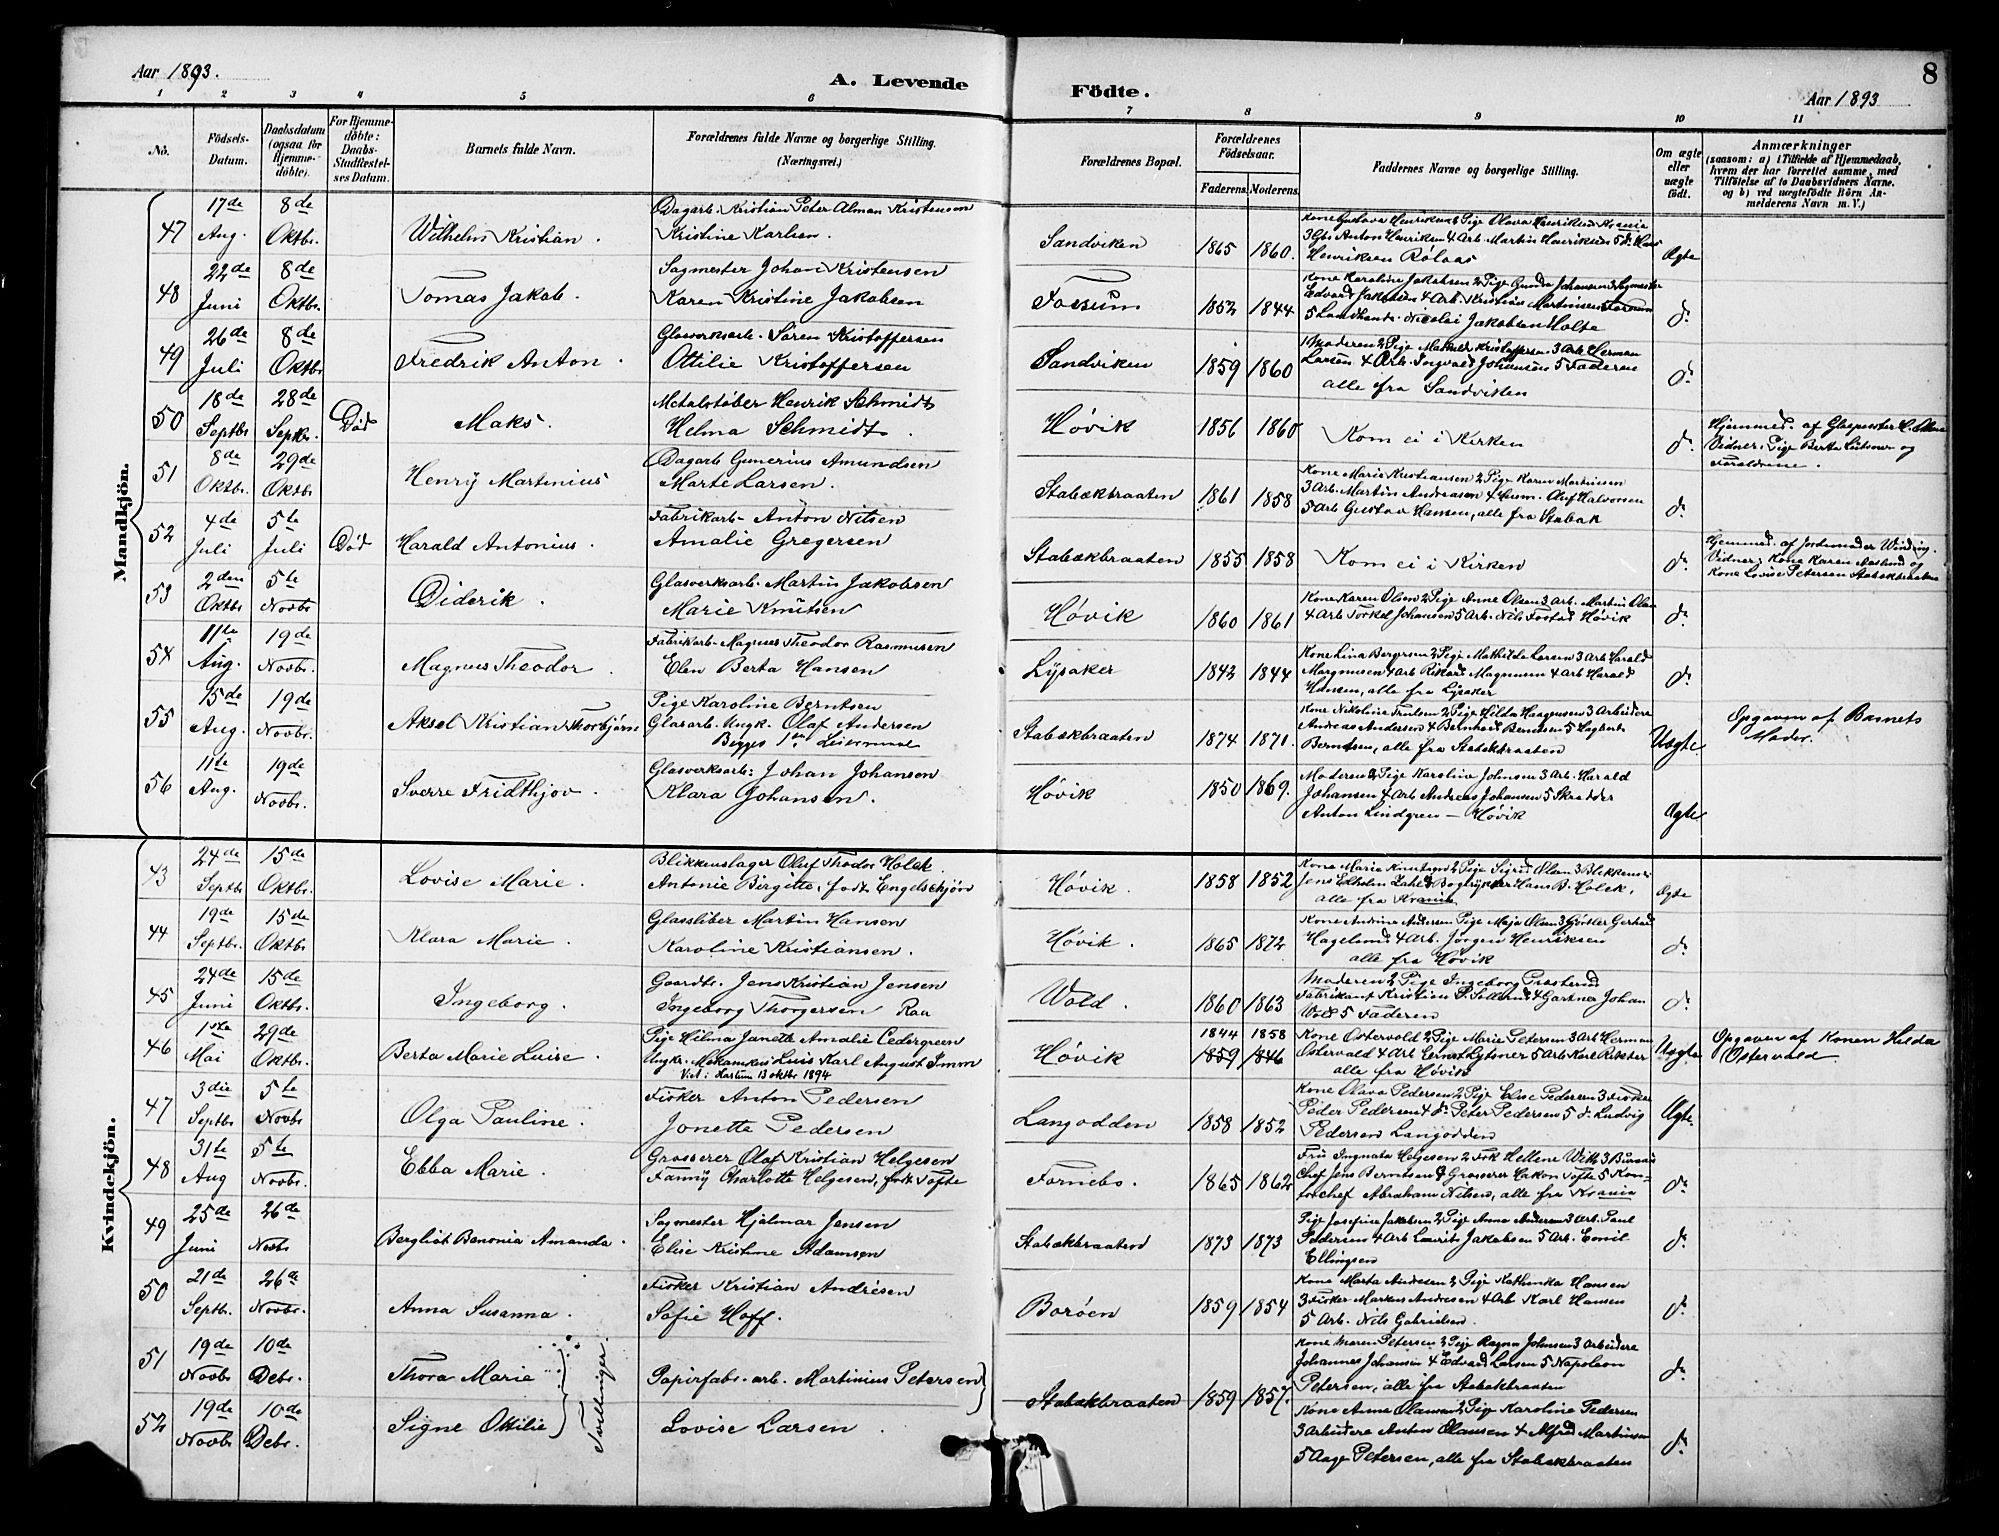 Aar 1893.
A. Levende
Födte.
Aar 1893
8
1 2 3 4 5 6 7 8 9 10 11
No.
Födsels-Datum.
Daabsdatum (ogsaa for Hjemme-döbte).
For Hjemme-döbte: Daabs-Stadfæstel-ses Datum.
Barnets fulde Navn.
Forældrenes fulde Navne og borgerlige Stilling.
(Næringsvei.)
Forældrenes Bopæl.
Forældrenes Födselsaar.
Faderens. Moderens.
Faddernes Navne og borgerlige Stilling.
Om ægte eller uægte födt.
Anmærkninger
(saasom: a) i Tilfælde af Hjemmedaab, hvem der har forrettet samme, med Tilföielse af to Daabsvidners Navne, og b) ved uægtefödte Börn Anmelderens Navn m. V.)
Mandkjön.
47 17de Aug. 8de Oktbr. Wilhelm Kristian. Dagarb. Kristian Peter Alman Kristensen
Kristine Karlsen. Sandviken 1865 1860. Ægte
Henriksen
48 22de Juni 8de Oktbr. Tomas Jakob. Sagmester Johan Kristensen
Karen Kristine Jakobsen Fossum 1852 1844 do
49 26de Juli 8de Oktbr Fredrik Anton. Glasverksarb. Sören Kristoffersen
Ottilie Kristoffersen Sandviken 1859 1860 do
1 Moderen 2 Pige Mathilde Kristoffersen 3 Arb. Herman
Larsen 4 Arb. Ingvald Johansen 5 Faderen
alle fra Sandviken
50 18de Septbr 28de Septbr. Död Maks. Metalstøber Henrik Schmidt
Helma Schmidt. Høvik 1856 1860 Kom ei i Kirken do
Vidner: Pige Berta
Forældrene.
51 8de Oktbr. 29de Oktbr. Henry Martinius Dagarb Gunerius Amundsen
Marte Larsen. Stabækbraaten 1861 1858 do
Kone Marie Kristiansen 2 Pige Karen Martinsen
3 Arb. Martin Andreasen 4 Husm. Oluf Halvorsen
5 Arb Gustav Hansen, alle fra Stabæk
52 4de Juli 5te Juli Död Harald Antonius. Fabrikarb. Anton Nilsen
Amalie Gregersen Stabækbraaten 1855 1858 Kom ei i Kirken do
Hjemmed. af Jordemoder
Vidner: Kone Karen Aaslund og
Kone Lovise Petersen Stabækbraaten
53 2den Oktbr 5te Novbr Diderik. Glasverksarb. Martin Jakobsen
Marie Knutsen Høvik 1860 1861 do
Kone Karen Olsen 2 Pige Anne Olsen 3 Arb. Martin Olsen
4 Arb Torkel Johansen 5 Arb. Nils Høvik
54 11te Aug. 19de Novbr. Magnus Theodor. Fabrikarb. Magnus Theodor Rasmusen
Elen Berta Hansen Lysaker 1842 1844 do
Kone Lina Bergersen 2 Pige Mathilde Larsen 3 Arb Harald
Margnusen 4 Arb Rikard Magnusen 4 Arb Harald
Hansen, alle fra Lysaker
55 15de Aug. 19de Novbr. Aksel Kristian Thorbjørn Pige Karoline Berntsen
Glasarb. Ungk. Olaf Andersen
Begges 1ste Leiermaal Stabækbraaten 1874 1871. Uægte.
Kone Nikoline Trulsen 2 Pige Hilda Haagensen 3 Arbeidere
Andreas Andersen 4 Bernhard Berntsen 5
Berntsen, alle fra Stabækbraaten
Opgaven af Barnets
Moder.
56 11te Aug. 19de Novbr. Sverre Fridthjov. Glasverksarb: Johan Johansen
Klara Johansen. Høvik 1850 1869. Ægte
Moderen 2 Pige Karoline Johnsen 3 Arb. Harald
Johansen 4 Arb Andreas Johansen 5 Skrædder
Anton Lindgren – Høvik
Kvindekjön.
43 24de Septbr 15de Oktbr. Lovise Marie. Blikkenslager Oluf Thodor Holck.
Antonie Birgitte, født Engelschjøn Høvik. 1858 1852 Ægte
Kone Marie Knutsen 2 Pige Sigrid Olsen 3 Blikkensl.
Jens Zahl 4 Bogtrykker Hans B. Holck,
alle fra Krania
44 19de Septbr. 15de Oktbr Klara Marie. Glassliber Martin Hansen
Karoline Kristiansen. Høvik. 1865 1872 do
Kone Andrine Andersen Pige Maja Olsen 3 Gjørtler Gerhard
Hagelund 4 Arb. Jørgen Henriksen
alle fra Høvik
45 24de Juni 15de Oktbr. Ingeborg. Gaardbr. Jens Kristian Jensen
Ingeborg Thorgersen Raa Wold. 1860 1863 do
Moderen 2 Pige Ingeborg Præsterud
Fabrikant Kristian P. 4 Gartner Johan
Wold 5 Faderen
46 1ste Mai 29de Oktbr. Berta Marie Luise. Pige Hilma Janette Amalie Cedergreen
Ungk. Mekanikus Luis Karl August Timm
Viet i Hartum 13 oktbr 1894 Høvik 1844 1858
1859 1846 Uægte.
Kone Ostervald 2 Pige Marie Petersen 3 Arb Herman
Ostervald 4 Arb Ernst Lytsner 5 Arb Karl Rikter
alle fra Høvik
Opgaven af Konen Hilda
Ostervald
47 3die Septbr 5te Novbr Olga Pauline. Fisker Anton Pedersen
Jonette Pedersen Langodden 1858 1852 Ægte.
Kone Olava Pedersen 2 Pige Elise Pedersen 3 Fisker
Peder Pedersen 4 do Peter Pedersen 5 do Ludvig
Pedersen Langodden
48 31te Aug 5te Novbr. Ebba Marie. Grosserer Olaf Kristian Helgesen
Fanny Charlotte Helgesen, født Tofte Fornebo. 1865 1862 do
Fru Ingnata Helgesen 2 Frk Hellene Wiik 3 Bureau
chef Jens Berntsen 4 Grosserer Hakon Tofte 5 Kon-
torchef Abraham Nilsen, alle fra Krania
49 25de Juni 26de Novbr Bergliot Benonia Amanda. Sagmester Hjalmar Jensen
Elise Kristine Adamsen Stabækbraaten 1873 1873 do
Pige Josefine Jakobsen 2 Pige Anna Andersen 3 Arb. Paul
Pedersen 4 Arb Laurits Jakobsen 5 Arb. Emil
Ellingsen
50 21de Septbr. 26de Novbr. Anna Susanna. Fisker Kristian Andrésen
Sofie Hoff. Borøen 1859 1854 do
Kone Marta Andresen 2 Pige Kathinka Hansen
3 Fisker Markus Andresen 4 Arb Karl Hansen
5 Arb. Nils Gabrielsen.
51 19de Novbr 10de Debr. Thora Marie Tvillinger. Papirfabr. arb. Martinius Petersen
Stabækbraaten 1859 1857. do
Kone Maren Petersen 2 Pige Ragna Johnsen 3 Arbeidere
Johannes Johansen 4 Edvard Larsen 5 Napoleon
Petersen, alle fra Stabækbraaten
52 19de Novbr 10de Debr. Signe Ottilie Lovise Larsen. do
Kone Anne Olausen 2 Pige Karoline Pedersen
3 Arbeidere Anton Olausen 4 Alfred Martinsen
5 Aage Petersen, alle fra Stabækbraaten